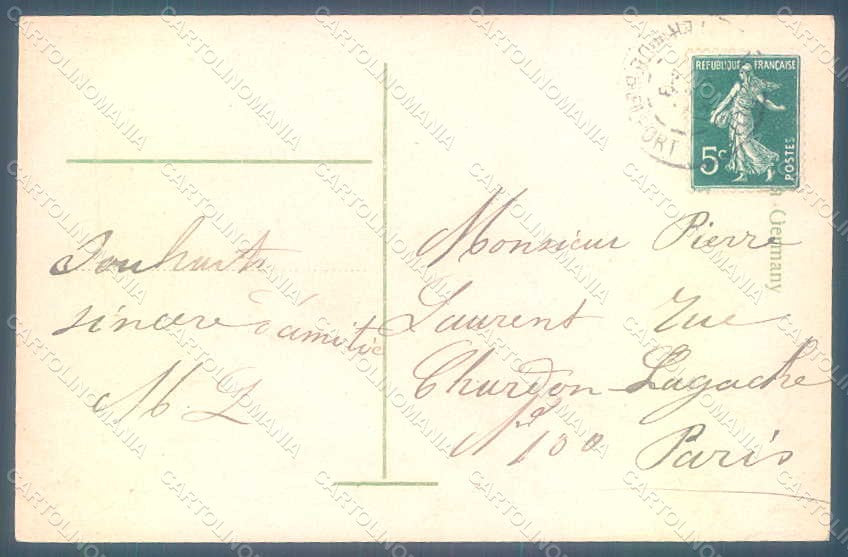 Souhaits
sincere d'amitié
M. L
Monsieur Pierre
Laurent Rue
Chardon-Lagache
No 100
Paris
REPUBLIQUE FRANÇAISE
5c
POSTES
Germany
CARTOLINOMANIA